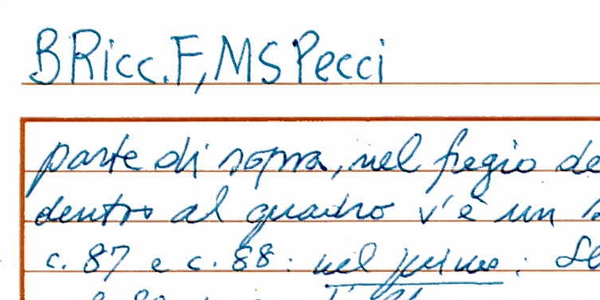 BRicc.F, MS Pecci
parte di sopra, nel fregio de
dentro al quadro v'è un
c. 87 e c. 88: nel primo: